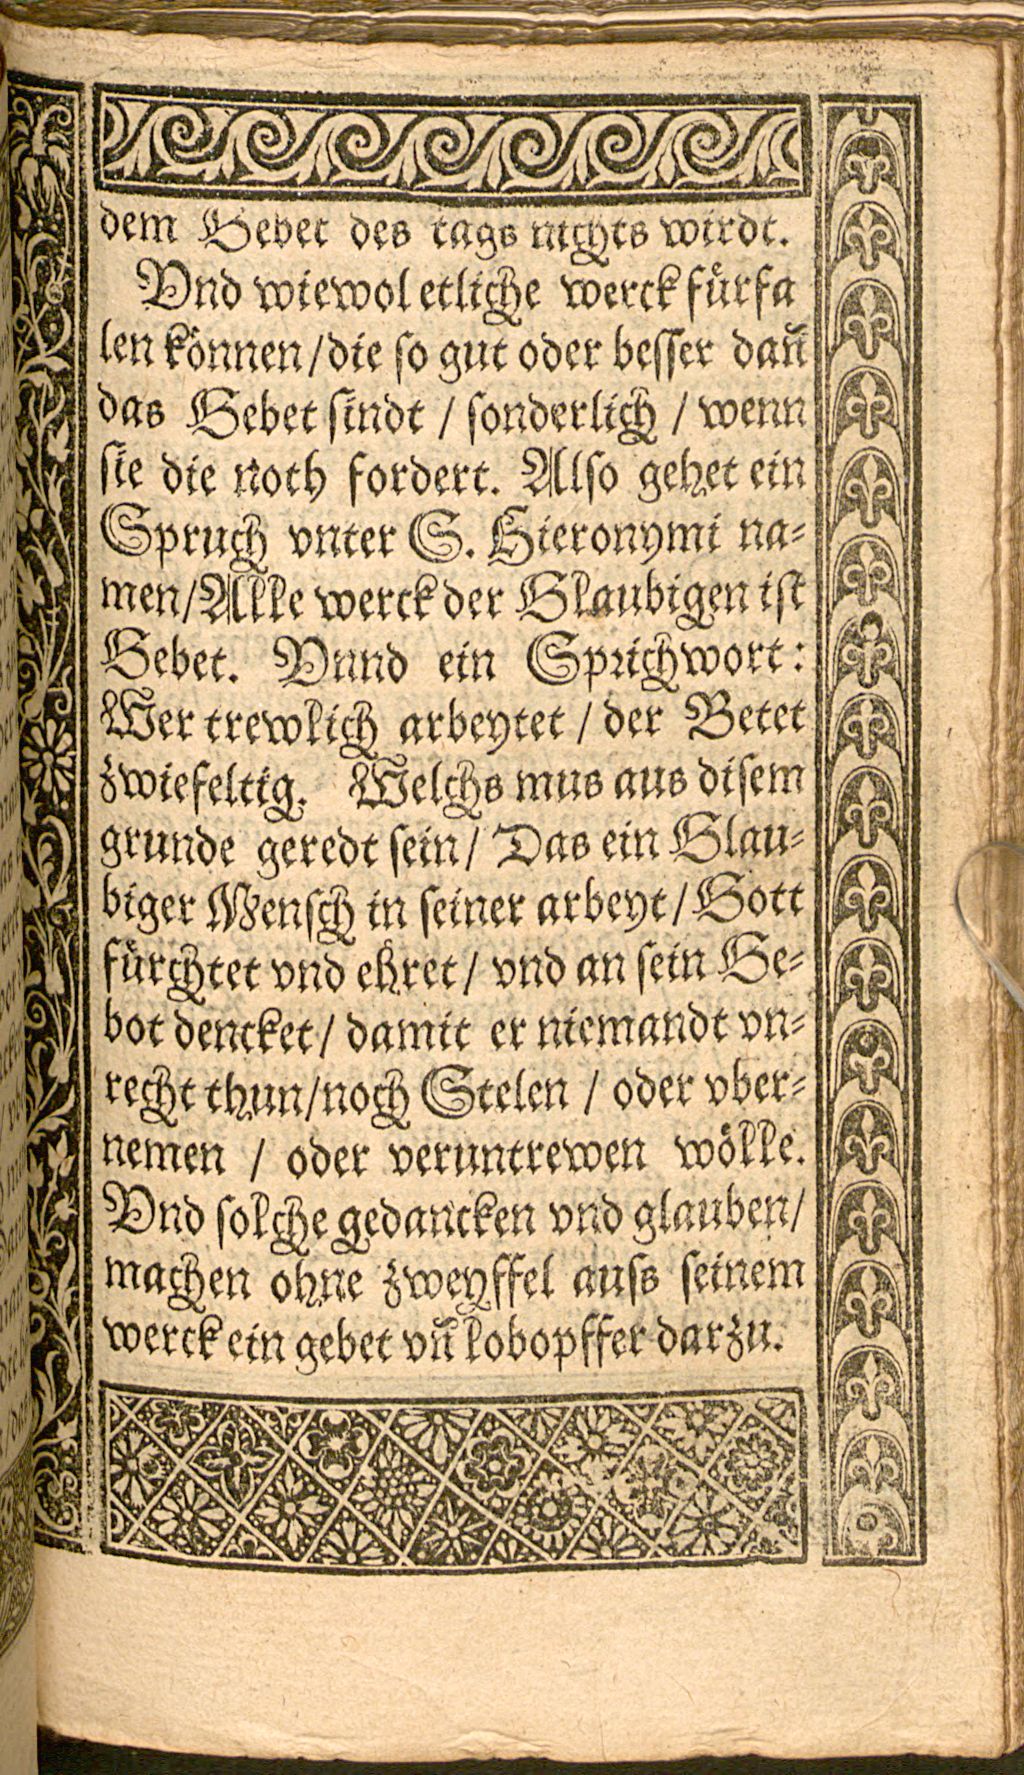 dem Gebet des tags nichts wirdt.
Vnd wiewol etliche werck fürfa
len können / die so gut oder besser dañ
das Gebet sindt / sonderlich / wenn
sie die noth fordert. Also gehet ein
Spruch vnter S. Hieronymi na-
men / Alle werck der Glaubigen ist
Gebet. Vnnd ein Sprichwort:
Wer trewlich arbeytet / der Betet
zwiefeltig. Welchs mus aus disem
grunde geredt sein / Das ein Glau-
biger Mensch in seiner arbeyt / Gott
fürchtet vnd ehret / vnd an sein Ge-
bot dencket / damit er niemandt vn-
recht thun / noch Stelen / oder vber-
nemen / oder veruntrewen wölle.
Vnd solche gedancken vnd glauben /
machen ohne zweyffel auss seinem
werck ein gebet vñ lobopffer darzu.